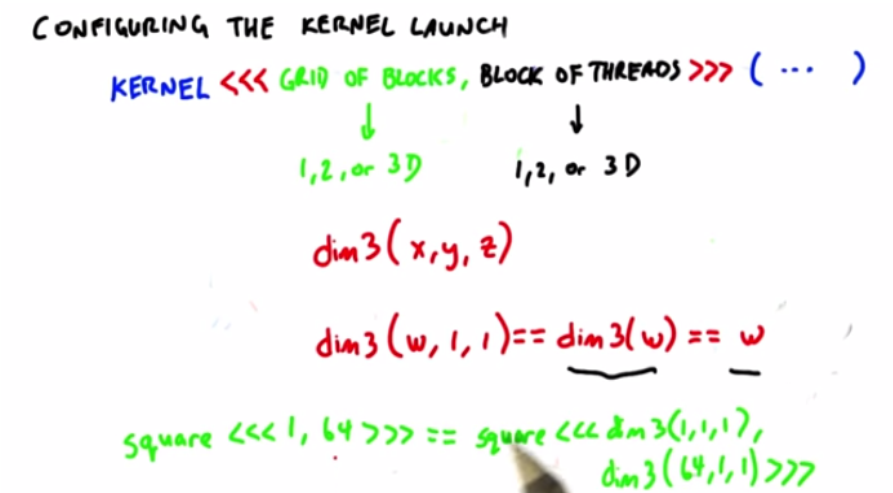 CONFIGURING THE KERNEL LAUNCH
KERNEL <<< GRID OF BLOCKS, BLOCK OF THREADS >>> ( ... )
1, 2, or 3D 1, 2, or 3D
dim3(x, y, z)
dim3(w, 1, 1) == dim3(w) == w
square <<< 1, 64 >>> == square <<< dim3(1, 1, 1),
dim3(64, 1, 1) >>>